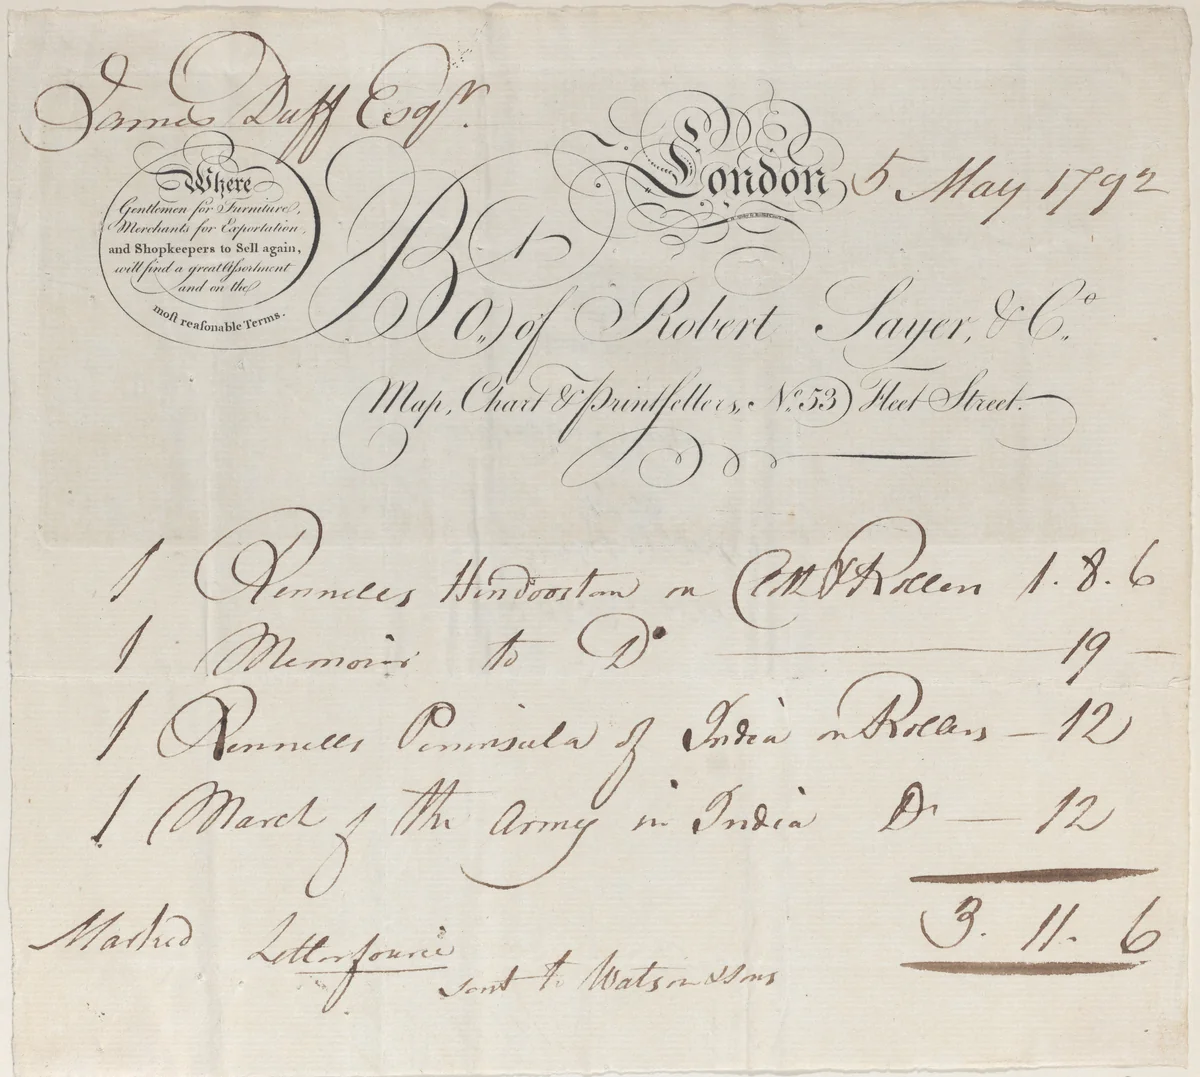 James Duff Esqr.
London 5 May 1792
Where
Gentlemen for Furniture,
Merchants for Exportation,
and Shopkeepers to Sell again,
will find a great Aſsortment
and on the
moſt reaſonable Terms.
Bo.t of Robert Sayer, & Co.
Map, Chart & Printſellers, No. 53 Fleet Street.
1 Rennells Hindoostan on Cth & Rollers 1. 8. 6
1 Memoir to Do 19 —
1 Rennells Peninsula of India on Rollers — 12
1 March of the Army in India Do — 12
3. 11. 6
Marked Letterfourie
sent to Watson & Sons